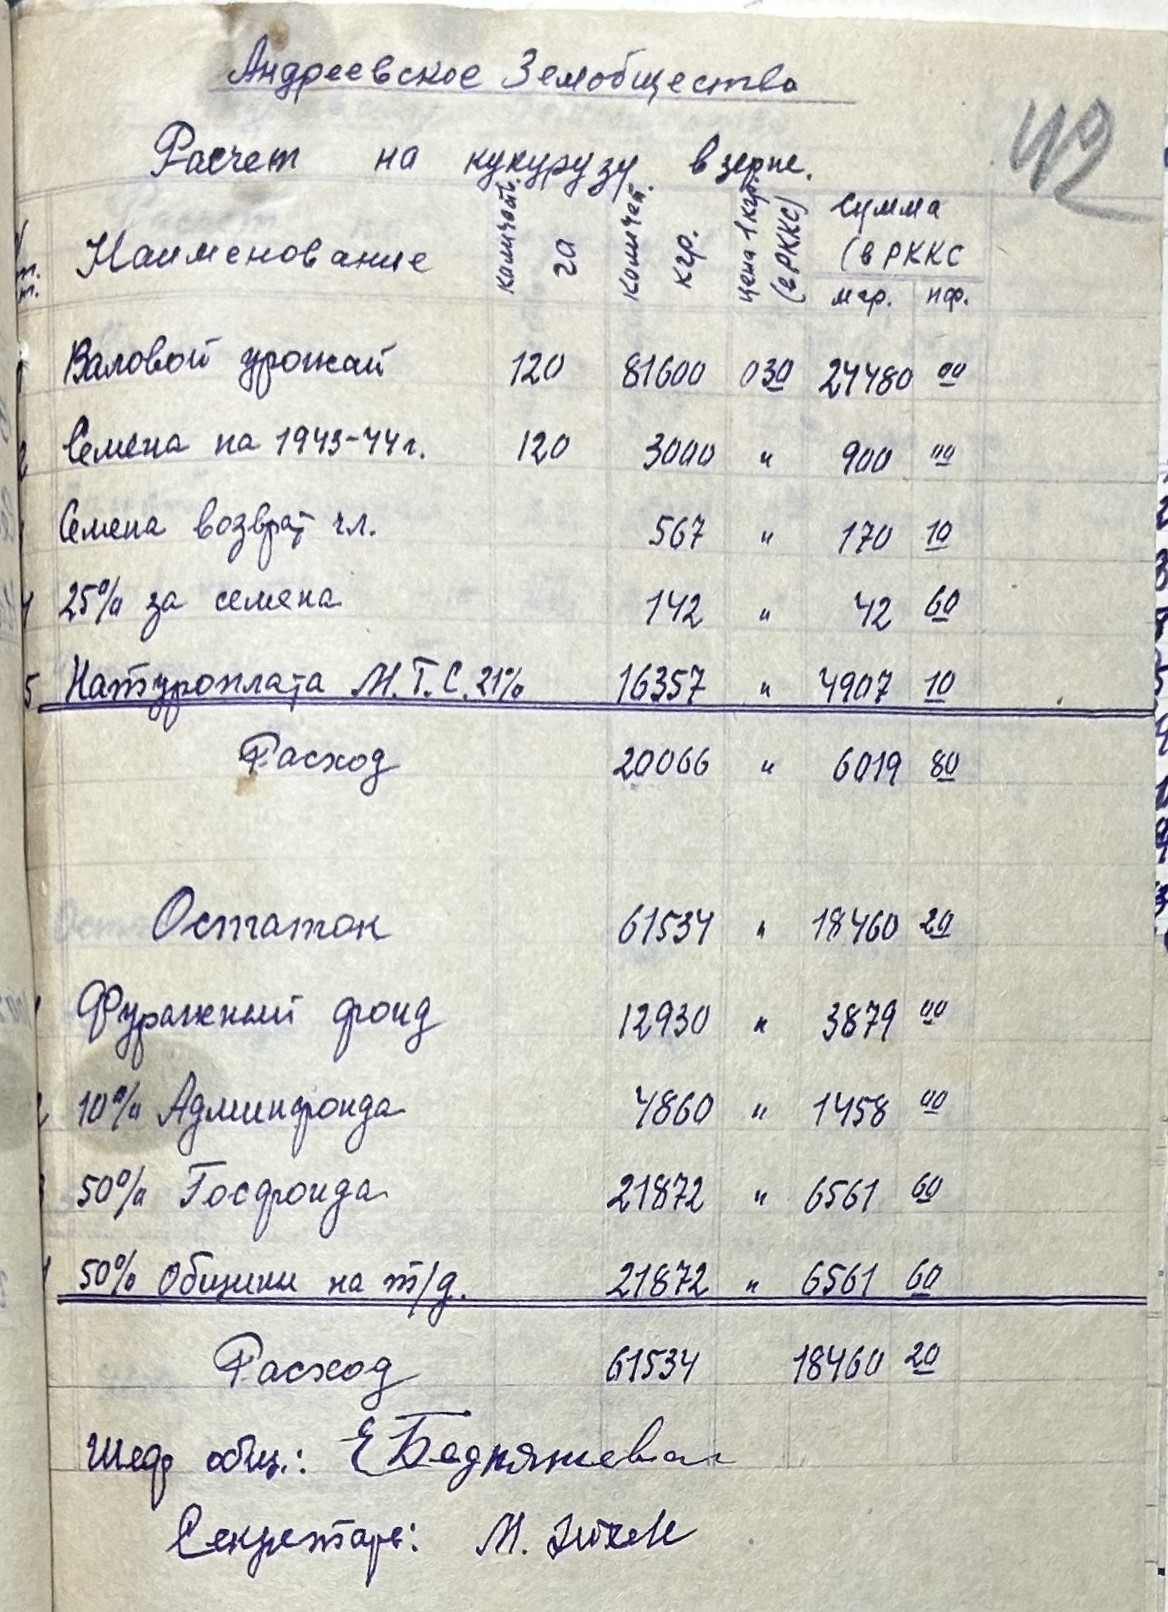 АндреевскоеЗемобщество
42
Расчет на кукурузу в зерне.
Наименование количеств. га количет. кгр. цена 1 кгр. (в РККС) Сумма (в РККС
мгр. пф.
Валовой урожай 120 81600 030 24480 00
2 Семена на 1943-44 г. 120 3000 " 900 00
Семена возврат чл. 567 " 170 10
4 25% за семена 142 " 42 60
5 Натуроплата М.Т.С. 21% 16357 " 4907 10
Расход 20066 " 6019 80
Остаток 61534 " 18460 20
Фуражный фонд 12930 " 3879 00
10% Админфонда 4860 " 1458 00
50% Госфонда 21872 " 6561 60
50% Общины на т/д. 21872 " 6561 60
Расход 61534 18460 20
Шеф общ.:
Секретарь: М.